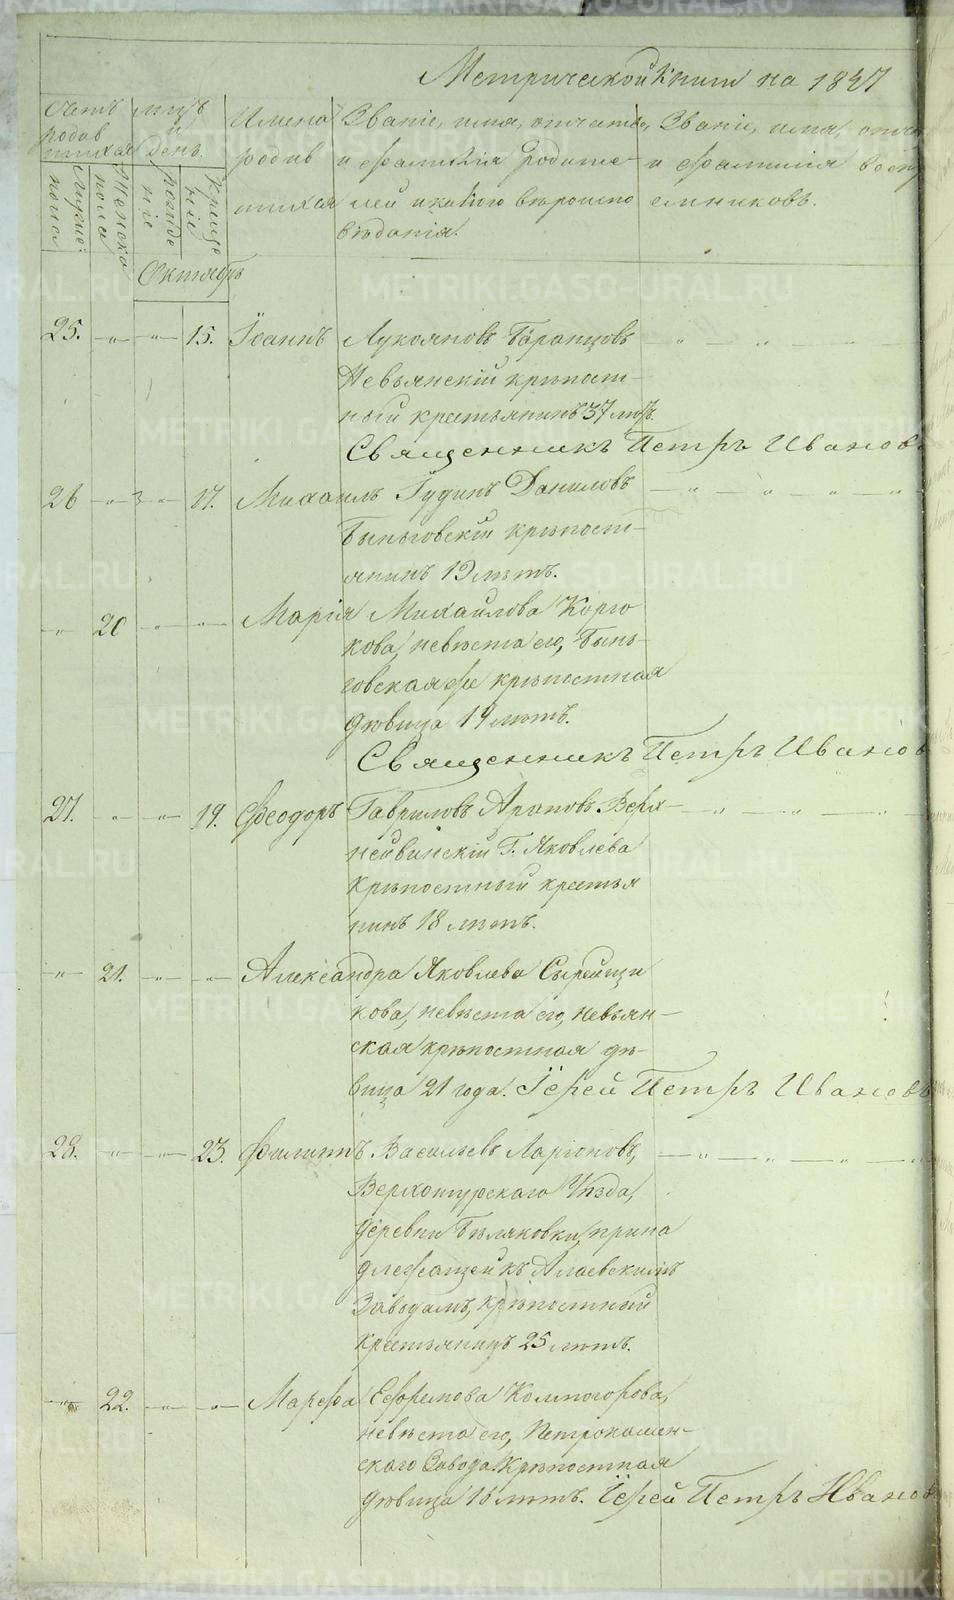 Метрической книги на 1847
Счетъ родившихся
Мужеска пола
Женска пола
мцъ и день.
рожденіе
крещеніе
Имена родившихся
Званіе, имя, отчество, и фамилія родителей и какого вѣроисповѣданія.
Званіе, имя, отче и фамилія воспріемниковъ.
Октябрь
25. — „ — „ — 15. Іоаннъ Лукояновъ Баранцовъ — „ — „ —
Невьянскій крѣпост-
ный крестьянинъ 37 лѣтъ.
Священникъ Петръ Иванов
26 — „ — „ — 17. Михаилъ Гудинъ Даниловъ — „ — „ — „ — „
Быньговскій крѣпост-
янинъ 19 лѣтъ.
— „ — 20 — „ — „ — Марія Михайлова Корго
кова, невѣста его, Бынь-
говская же крѣпостная
дѣвица 19 лѣтъ.
Священникъ Петръ Иванов
27. — „ — „ — 19. Феодоръ Гавриловъ Арапов Верх — „ — „ — „
нейвинскій Г. Яковлева
крѣпостный крестья
нинъ 18 лѣтъ.
— „ — 21. — „ — „ — Александра Яковлева Сырейщи
кова, невѣста его, невьян-
ская крѣпостная дѣ-
вица 21 года. Іерей Петръ Ивановъ
28. — „ — „ — 23. Филиппъ Васильевъ Ларіоновъ, — „ — „ — „ —
Верхотурскаго Уѣзда,
деревни Бѣляковки, прина
длежащей къ Алаевскимъ
Заводамъ, крѣпостный
крестьянинъ 25 лѣтъ.
— „ — 22. — „ — „ — Марѳа Ефремова Колмогорова,
невѣста его, Петрокамен-
скаго Завода крѣпостная
дѣвица 16 лѣтъ. Іерей Петръ Иванов
METRIKI.GASO-URAL.RU